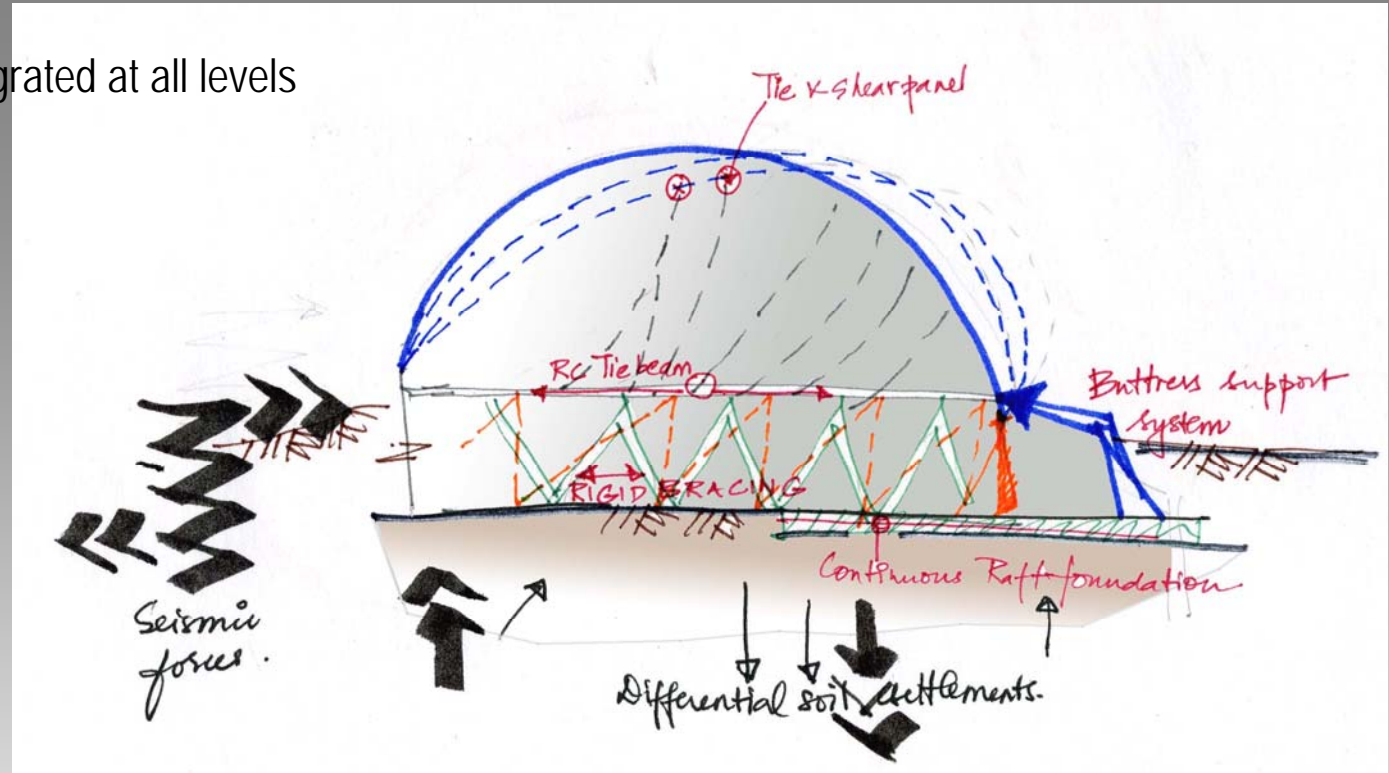 grated at all levels
Tie & shear panel
RC Tie beam
Buttress support
system
RIGID BRACING
Continuous Raft foundation
Seismic
forces.
Differential soil settlements.